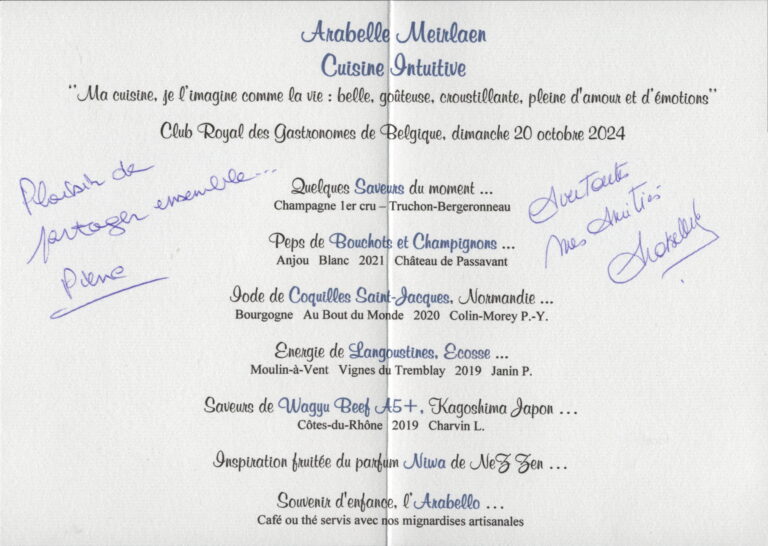 Arabelle Meirlaen
Cuisine Intuitive
"Ma cuisine, je l'imagine comme la vie : belle, goûteuse, croustillante, pleine d'amour et d'émotions"
Club Royal des Gastronomes de Belgique, dimanche 20 octobre 2024
Plaisir de
partager ensemble...
Pierre
Quelques Saveurs du moment ...
Champagne 1er cru – Truchon-Bergeronneau
Avec toutes
mes Amitiés
Arabelle
Peps de Bouchots et Champignons ...
Anjou Blanc 2021 Château de Passavant
Iode de Coquilles Saint-Jacques, Normandie ...
Bourgogne Au Bout du Monde 2020 Colin-Morey P.-Y.
Energie de Langoustines, Ecosse ...
Moulin-à-Vent Vignes du Tremblay 2019 Janin P.
Saveurs de Wagyu Beef A5+, Kagoshima Japon ...
Côtes-du-Rhône 2019 Charvin L.
Inspiration fruitée du parfum Niwa de NeZ Zen ...
Souvenir d'enfance, l'Arabello ...
Café ou thé servis avec nos mignardises artisanales